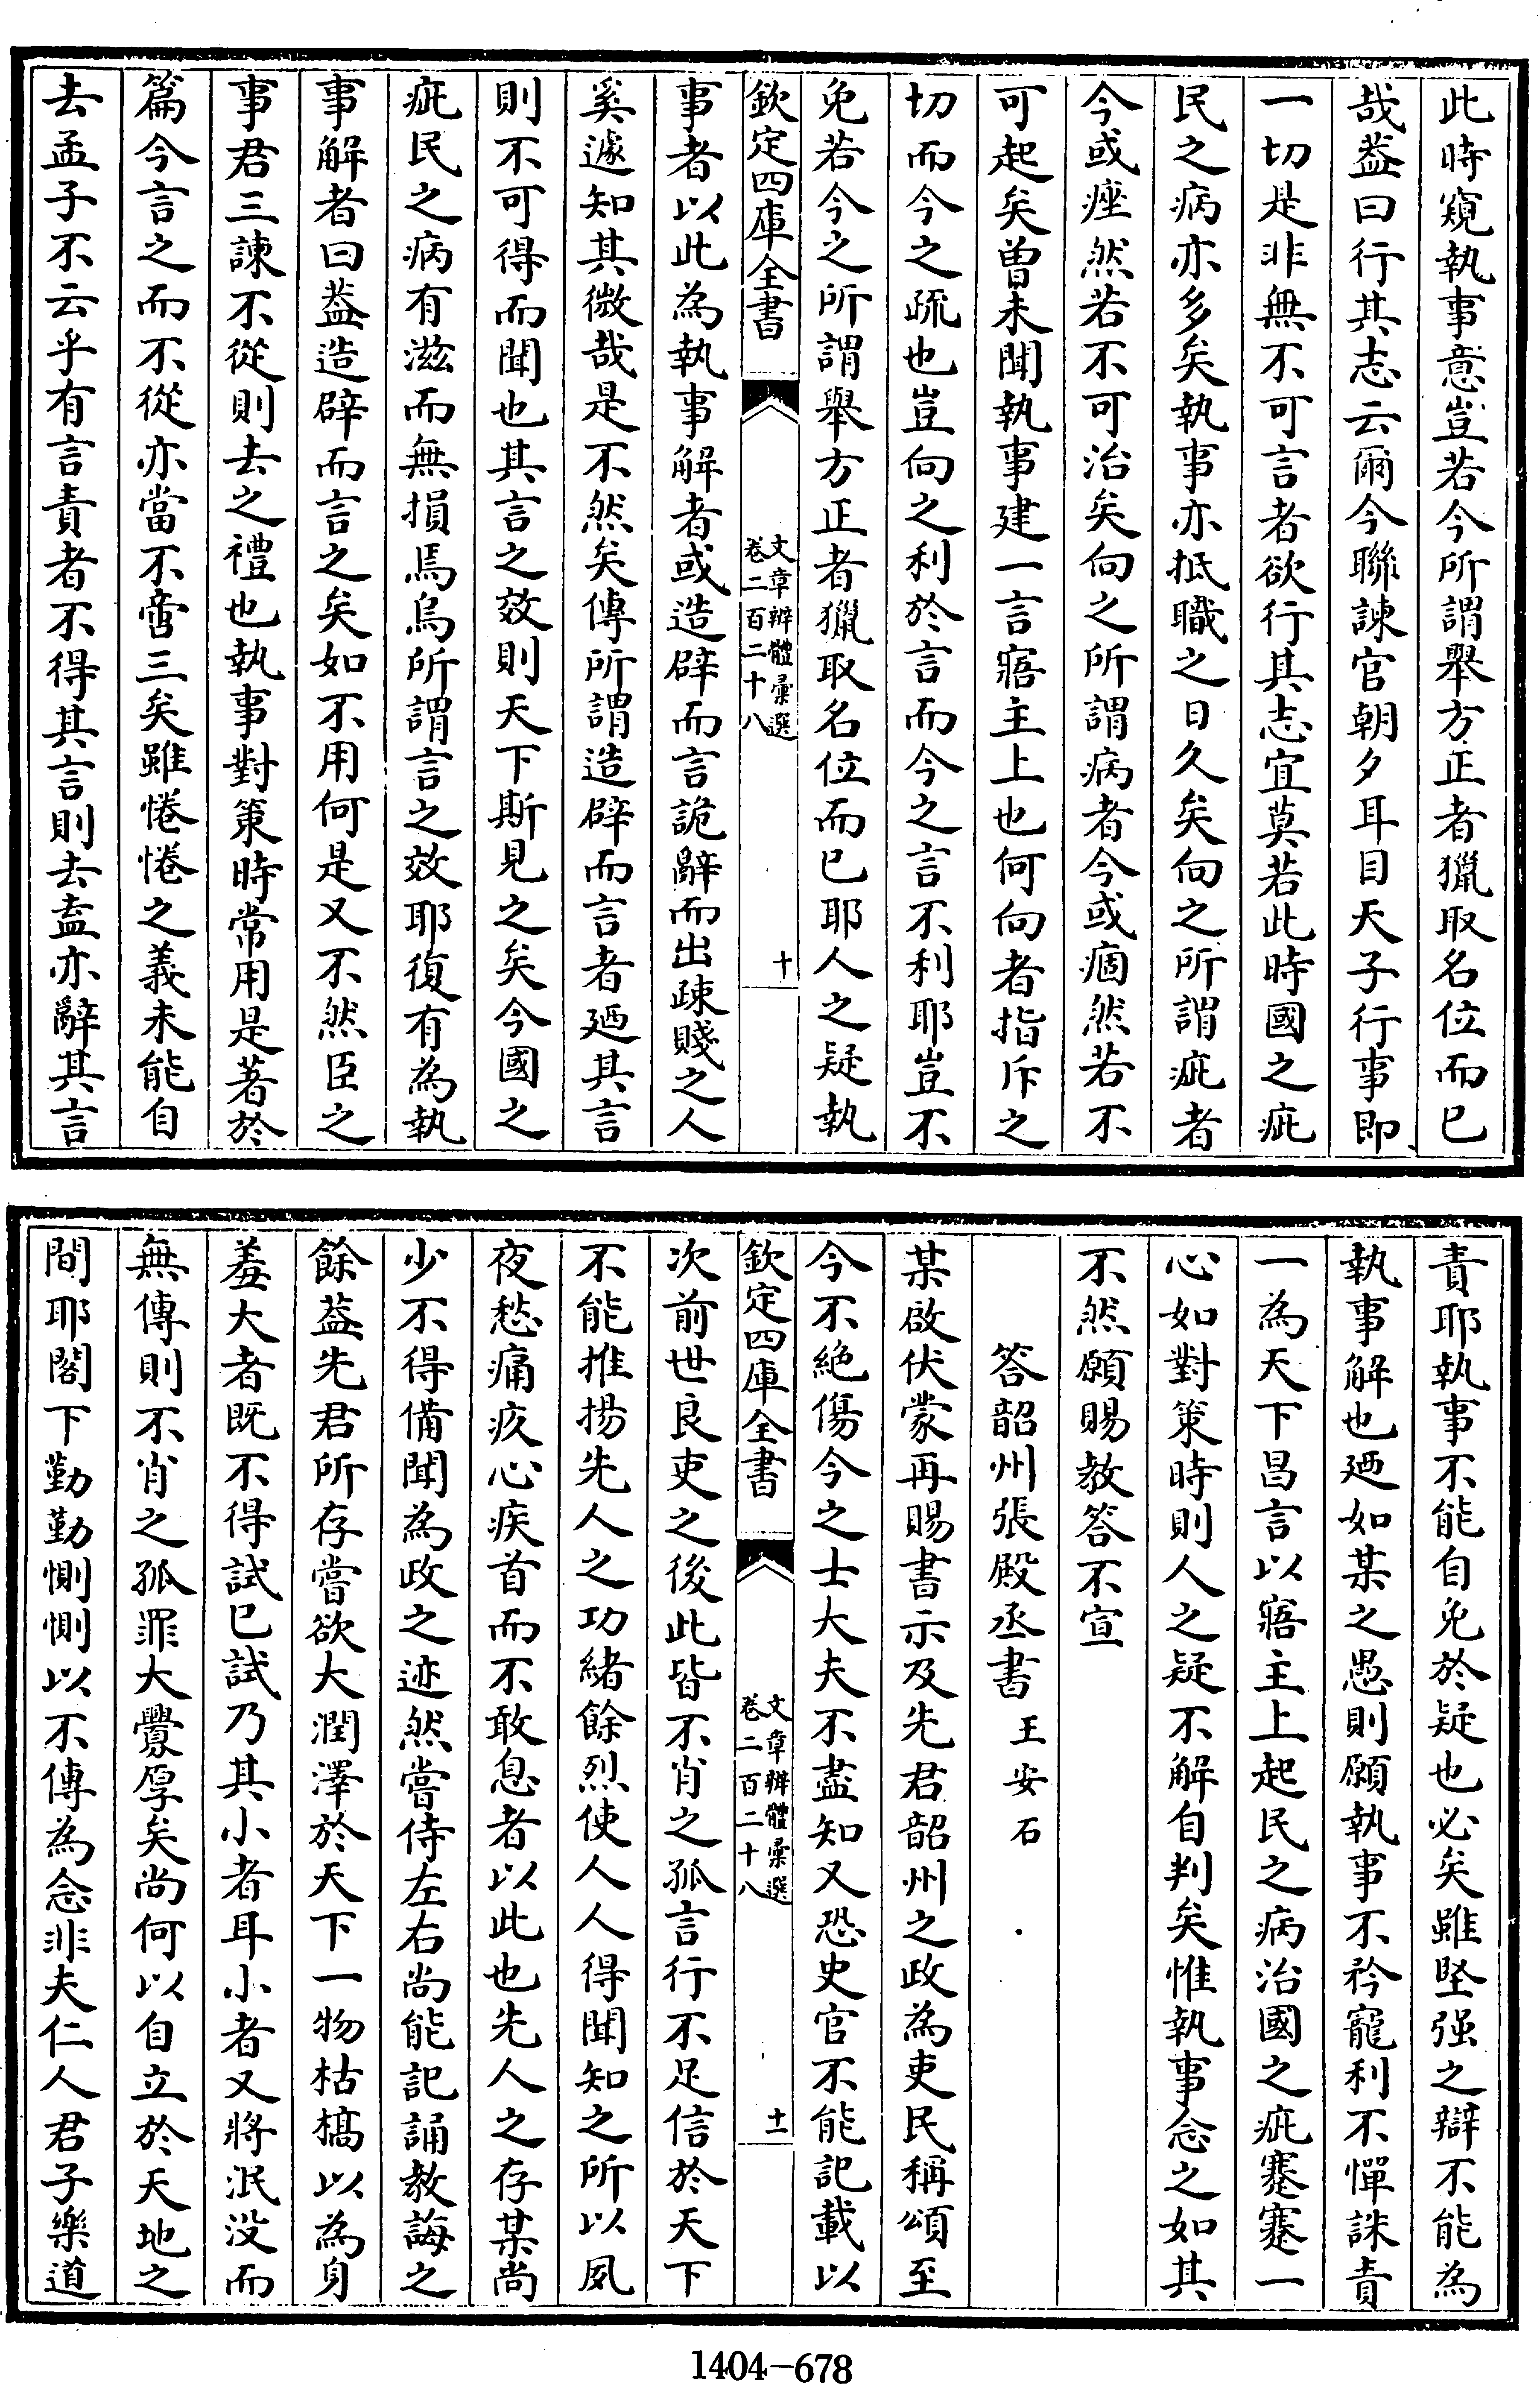 此時窺執事意豈若今所謂舉方正者獵取名位而已
哉葢曰行其志云爾今聯諫官朝夕耳目天子行事即
一切是非無不可言者欲行其志宜莫若此時國之疵
民之病亦多矣執事亦抵職之日久矣向之所謂疵者
今或痤然若不可治矣向之所謂病者今或痼然若不
可起矣曾未聞執事建一言寤主上也何向者指斥之
切而今之疏也豈向之利於言而今之言不利耶豈不
免若今之所謂舉方正者獵取名位而已耶人之疑執
欽定四庫全書
文章辨體彙選
卷二百二十八
十
事者以此為執事解者或造辟而言詭辭而出疎賤之人
奚遽知其微哉是不然矣傳所謂造辟而言者廼其言
則不可得而聞也其言之效則天下斯見之矣今國之
疵民之病有滋而無損焉烏所謂言之效耶復有為執
事解者曰葢造辟而言之矣如不用何是又不然臣之
事君三諫不從則去之禮也執事對策時常用是著於
篇今言之而不從亦當不啻三矣雖惓惓之義未能自
去孟子不云乎有言責者不得其言則去盍亦辭其言
責耶執事不能自免於疑也必矣雖堅强之辯不能為
執事解也廼如某之愚則願執事不矜寵利不憚誅責
一為天下昌言以寤主上起民之病治國之疵蹇蹇一
心如對策時則人之疑不解自判矣惟執事念之如其
不然願賜教答不宣
答韶州張殿丞書 王安石
某啟伏蒙再賜書示及先君韶州之政為吏民稱頌至
今不絶傷今之士大夫不盡知又恐史官不能記載以
欽定四庫全書
文章辨體彙選
卷二百二十八
十一
次前世良吏之後此皆不肖之孤言行不足信於天下
不能推揚先人之功緒餘烈使人人得聞知之所以夙
夜愁痛疚心疾首而不敢息者以此也先人之存某尚
少不得備聞為政之迹然嘗侍左右尚能記誦教誨之
餘葢先君所存嘗欲大潤澤於天下一物枯槁以為身
羞大者既不得試已試乃其小者耳小者又將泯没而
無傳則不肖之孤罪大釁厚矣尚何以自立於天地之
間耶閣下勤勤惻惻以不傳為念非夫仁人君子樂道
1404-678